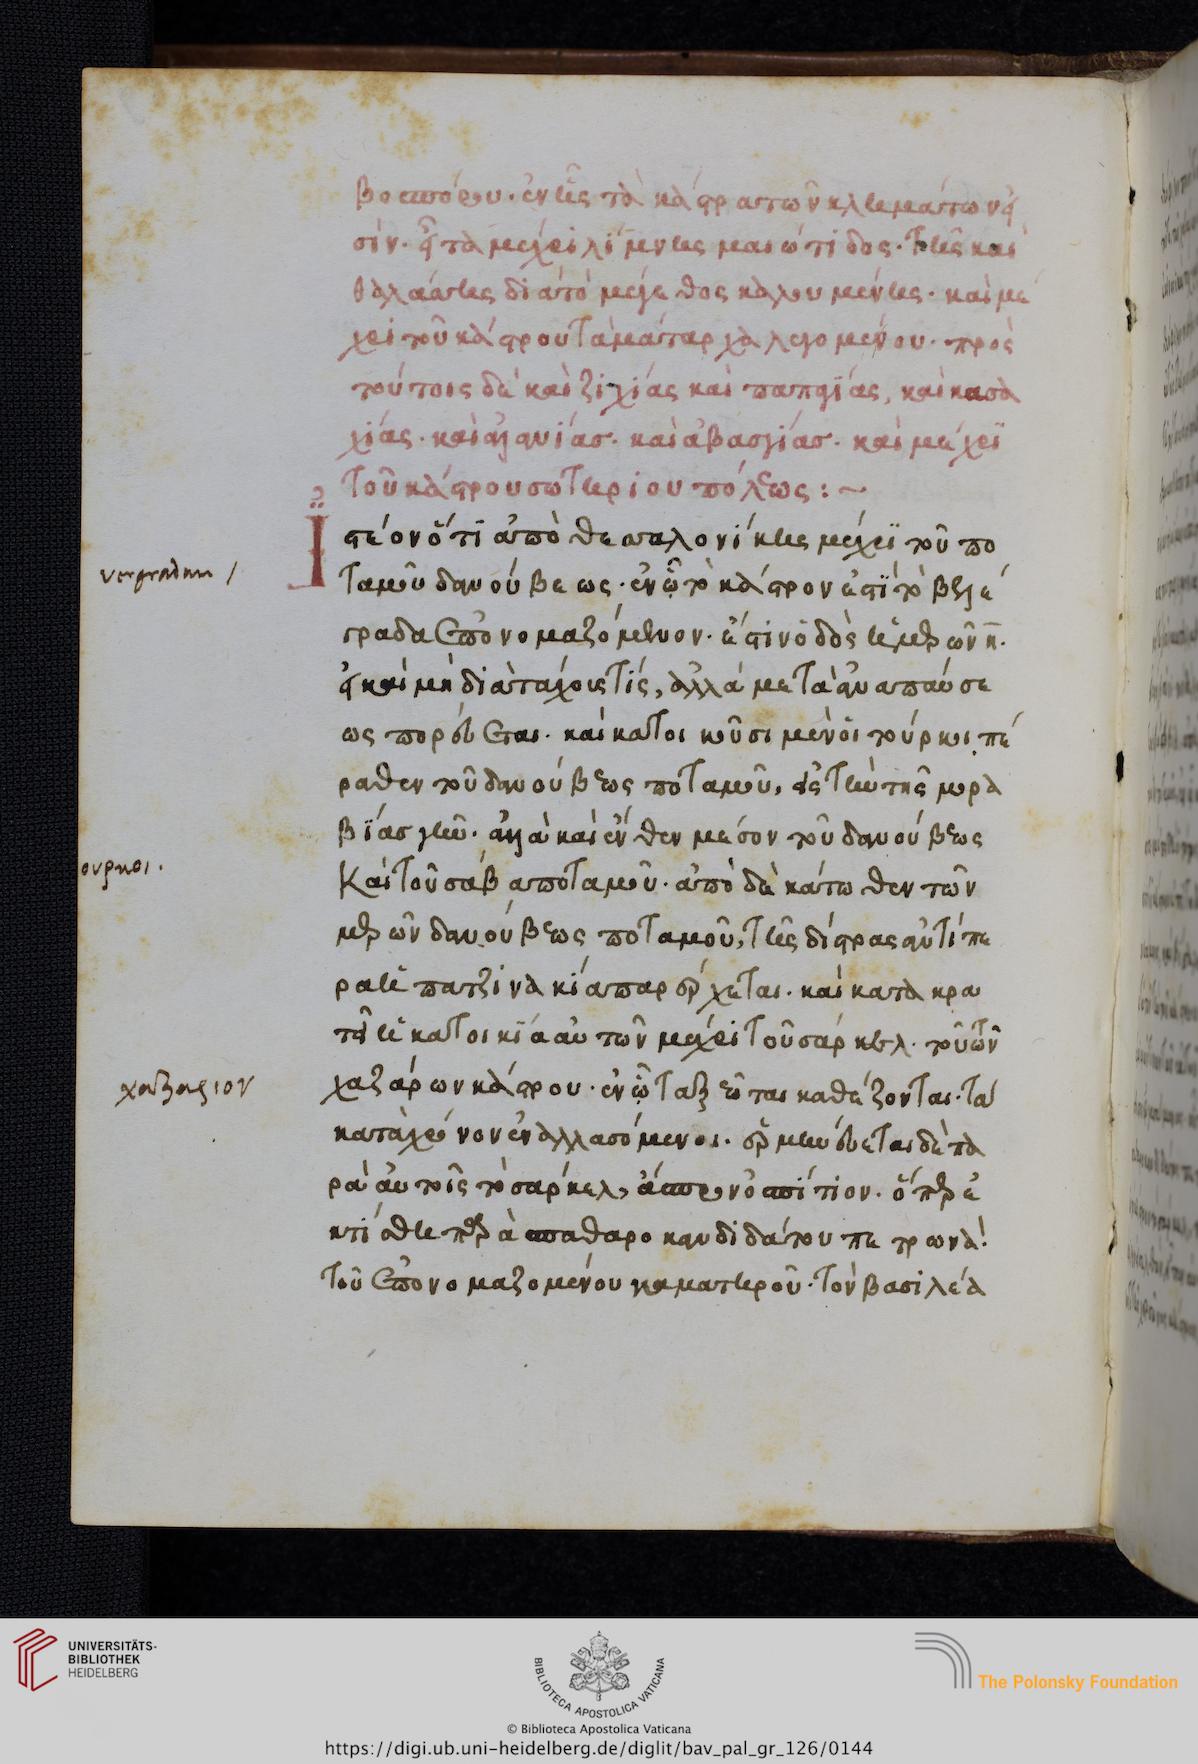 βοσπόρου· ἐν ᾗς τὰ κάστρα τῶν κλημάτων εἰ
σίν· καὶ τὰ μέχρι λίμνης μαιώτιδος· τῆς καὶ
θαλάσσης διὰ τὸ μέγεθος καλουμένης· καὶ μέ
χρι τοῦ κάστρου ταμάταρχα λεγομένου· πρὸς
τούτοις δὲ καὶ ζιχίας καὶ παπαγίας, καὶ κασα
χίας· καὶ ἀλανίασ· καὶ ἀβασγίασ· καὶ μέχρϊ
τοῦ κάστρου σωτηριουπόλεως :~
Ἰστέον ὅτϊ ἀπὸ θεσσαλονίκης μέχρϊ τοῦ πο
vergradum /
ταμοῦ δανούβεως· ἐν ᾧ τὸ κάστρον ἐστὶ τὸ βελέ
γραδα ἐπονομαζόμενον· ἔστιν ὁδὸς ἡμερῶν η·
εἰ καὶ μὴ διὰ τάχους τίς, ἀλλὰ μετὰ ἀναπαύσε
ως πορεύεται· καὶ κατοικοῦσι μὲν οἱ τούρκοι πέ
ραθεν τοῦ δανούβεως ποταμοῦ, εἰς τὴν τῆς μορα
βίασ γῆν· ἀλλὰ καὶ ἔνθεν μέσον τοῦ δανούβεως
ουρκοι.
καὶ τοῦ σάβα ποταμοῦ· ἀπὸ δὲ κάτωθεν τῶν
μερῶν δανούβεως ποταμοῦ, τῆς δίστρας ἀντίπε
ρα ἡ πατζινακία παρέρχεται· καὶ κατακρα
τεῖ ἡ κατοικία αὐτῶν μέχρι τοῦ σάρκελ· τοῦ τῶν
χαζάρων κάστρου· ἐν ᾧ ταξεῶται καθέζονται· τα
χαζαριον
κατὰ χρόνον ἐναλλασόμενοι· ἑρμηνεύεται δὲ πα
ρὰ αὐτοῖς τὸ σάρκελ, ἄσπρον ὀσπίτιον· ὅπερ ἐ
κτίσθη παρὰ σπαθαροκανδιδάτου πετρωνᾶ·
τοῦ ἐπονομαζομένου καματηροῦ· τὸν βασιλέα
UNIVERSITÄTS-
BIBLIOTHEK
HEIDELBERG
BIBLIOTECA APOSTOLICA VATICANA
The Polonsky Foundation
© Biblioteca Apostolica Vaticana
https://digi.ub.uni-heidelberg.de/diglit/bav_pal_gr_126/0144